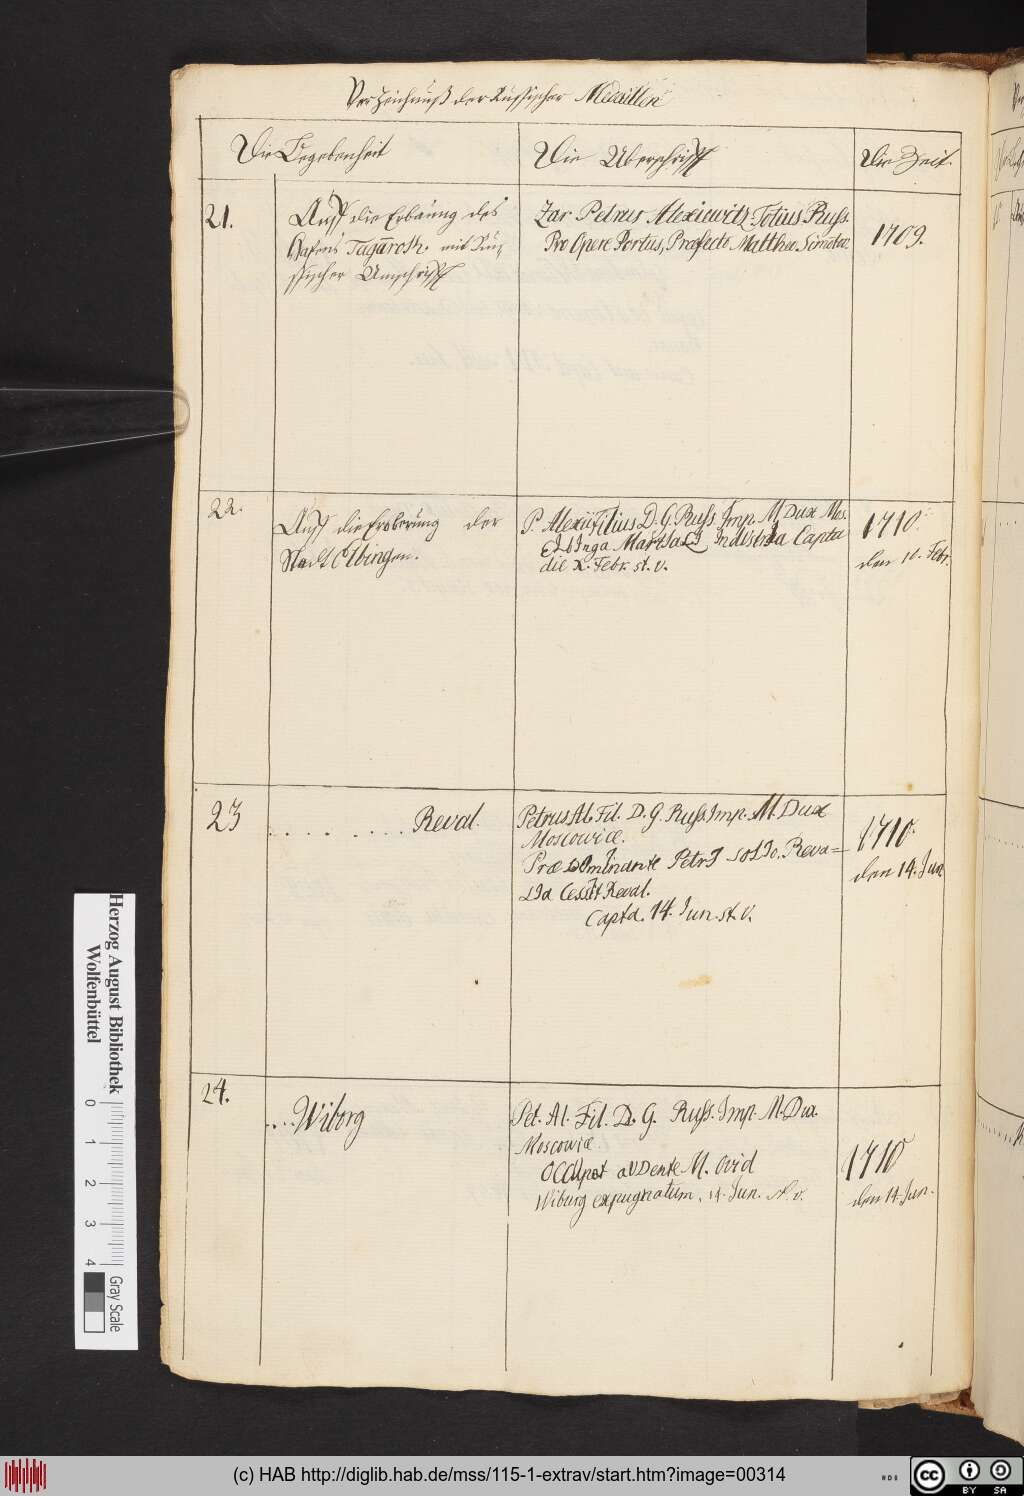 Verzeichnuß der Russischer Medaillen
Die Begebenheit
Die Uberschrifft
Die Zeit.
21.
Auff die Erbauung des
Hafens Tagaroth. mit Rus-
sischer Umschrifft
Zar Petrus Alexiewitz Totius Russ.
Pro Opere Portus, Præfecto Mattheo. Simeter.
1709.
22.
Auff die Eroberung der
Stadt Elbingen.
P. Alexii Filius D. G. Russ. Imp. M Dux Mos.
ELbInga MartIaLI IndUstrIa Capta
die X. Febr. st. v.
1710.
den 10. Febr.
23
. . . . . . . . Reval.
Petrus Al. Fil. D. G. Russ. Imp. M. Dux
Moscoviæ.
Præ DomInante PetrI soLIo, Reva=
LIa CessIt Reval.
Capta. 14. Jun. st. v.
1710.
den 14. Jun
24.
.... Wiborg
Pet. Al. Fil. D. G. Russ. Imp. M. Dux.
Moscoviæ
OCCUpat aUDente M. Ovid
Wiburg expugnatum, 14. Jun. st. v.
1710
den 14. Jun.
Herzog August Bibliothek
Wolfenbüttel
0 1 2 3 4
Gray Scale
(c) HAB http://diglib.hab.de/mss/115-1-extrav/start.htm?image=00314
cc BY SA